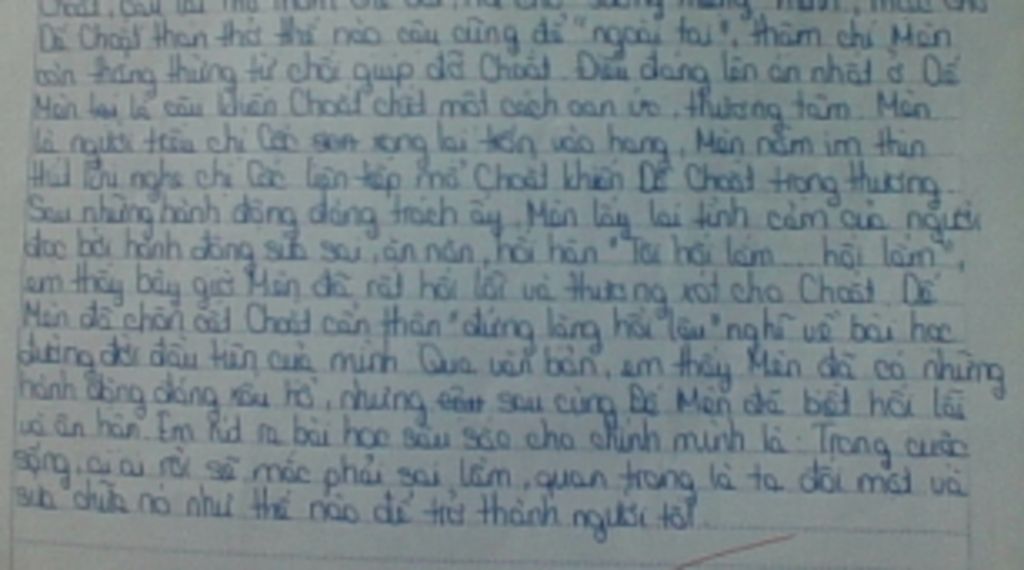 Choắt, cậu ta
Dế Choắt than thở thế nào cậu cũng để "ngoài tai", thậm chí Mèn
còn thẳng thừng từ chối giúp đỡ Choắt. Điều đáng lên án nhất ở Dế
Mèn lại là cậu khiến Choắt chết một cách oan ức, thương tâm. Mèn
là người trêu chị Cốc xong lại trốn vào hang, Mèn nằm im thin
thít khi nghe chị Cốc liên tiếp mổ Choắt khiến Dế Choắt trọng thương.
Sau những hành động đáng trách ấy, Mèn lấy lại tình cảm của người
đọc bởi hành động sửa sai, ăn năn, hối hận "Tôi hối lắm... hối lắm",
em thấy bây giờ Mèn đã rất hối lỗi và thương xót cho Choắt. Dế
Mèn đã chôn cất Choắt cẩn thận "đứng lặng hồi lâu" nghĩ về bài học
đường đời đầu tiên của mình. Qua văn bản, em thấy Mèn đã có những
hành động đáng xấu hổ, nhưng sau cùng Dế Mèn đã biết hối lỗi
và ân hận. Em rút ra bài học sâu sắc cho chính mình là: Trong cuộc
sống, ai ai rồi sẽ mắc phải sai lầm, quan trọng là ta đối mặt và
sửa chữa nó như thế nào để trở thành người tốt.